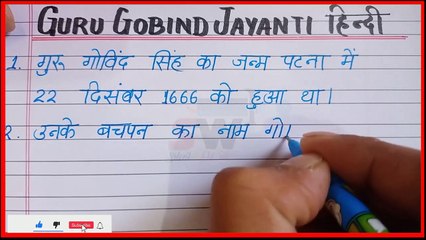 GURU GOBIND JAYANTI हिन्दी
1. गुरु गोविंद सिंह का जन्म पटना में
22 दिसंबर 1666 को हुआ था।
2. उनके बचपन का नाम गो